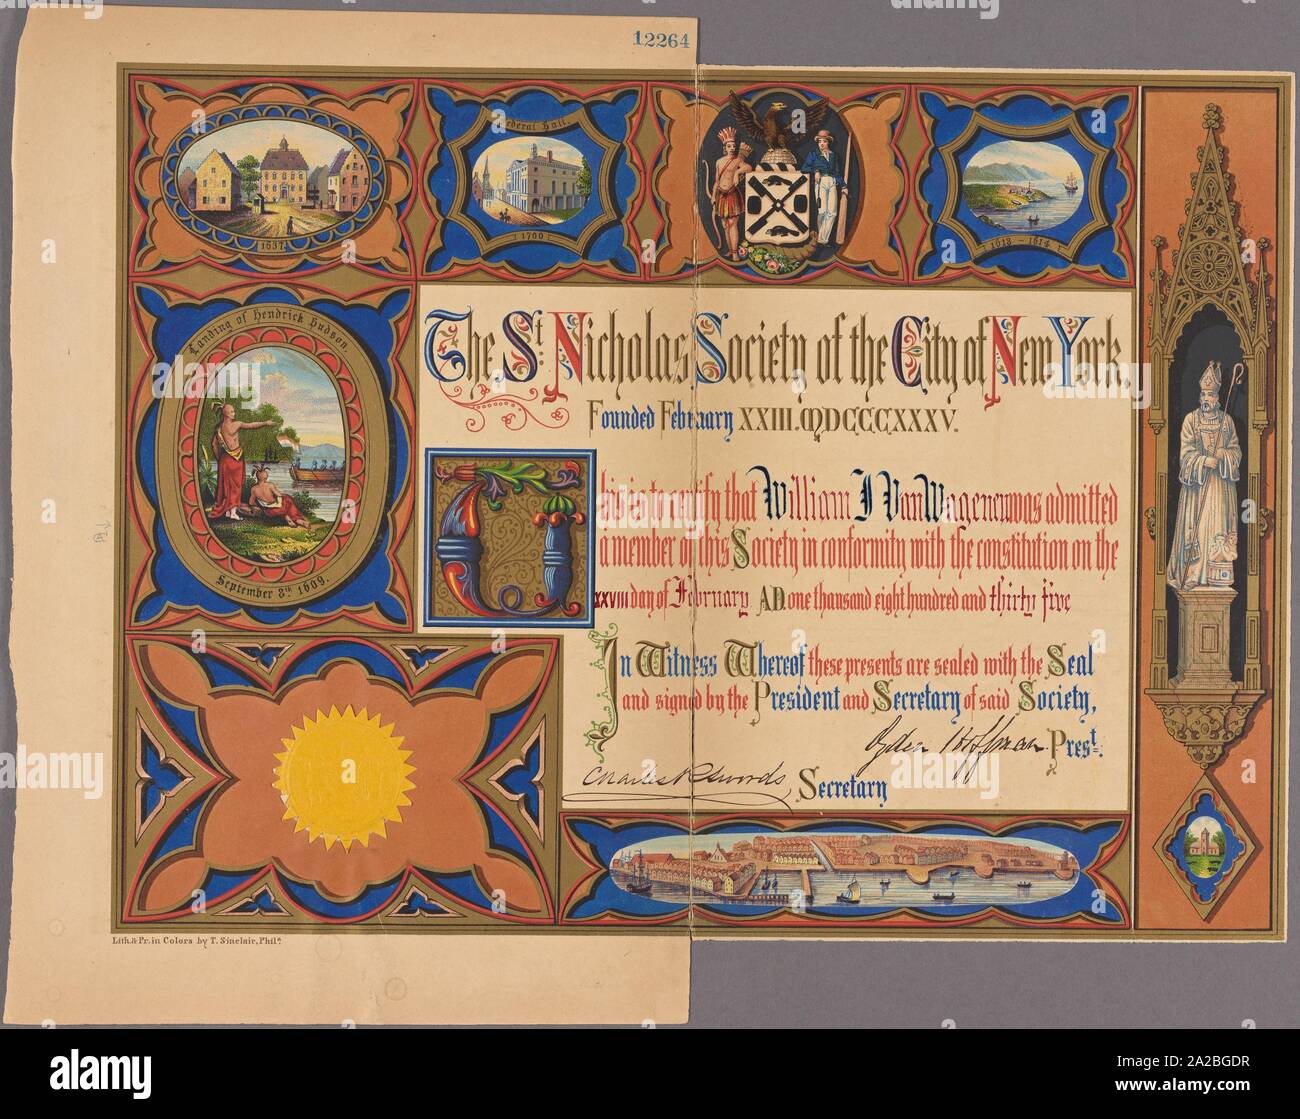 12264
1637.
Federal Hall.
1700
1613 - 1614
Landing of Hendrick Hudson.
September 8th. 1609.
The St. Nicholas Society of the City of New York.
Founded February XXIII. MDCCCXXXV.
This is to certify that William J Van Wagenen was admitted
a member of this Society in conformity with the constitution on the
XXVIII day of February A.D. one thousand eight hundred and thirty five
In Witness Whereof these presents are sealed with the Seal
and signed by the President and Secretary of said Society,
Ogden Hoffman Prest.
Charles R Swords, Secretary
Lith. & Pr. in Colors by T. Sinclair, Phila.
alamy
Image ID: 2A2BGDR
www.alamy.com